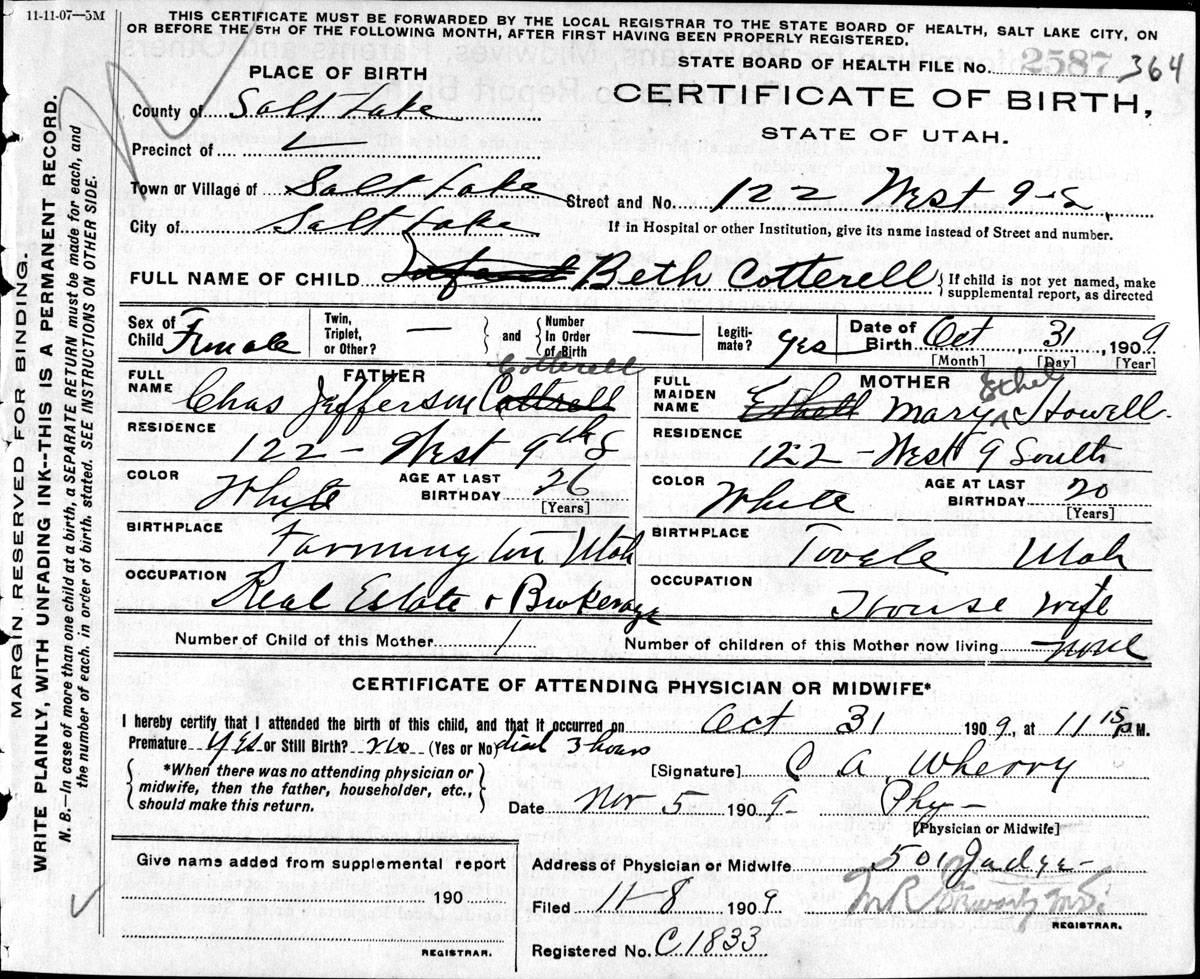 11-11-07—5M
THIS CERTIFICATE MUST BE FORWARDED BY THE LOCAL REGISTRAR TO THE STATE BOARD OF HEALTH, SALT LAKE CITY, ON
OR BEFORE THE 5TH OF THE FOLLOWING MONTH, AFTER FIRST HAVING BEEN PROPERLY REGISTERED.
STATE BOARD OF HEALTH FILE No. 2587 364
PLACE OF BIRTH
CERTIFICATE OF BIRTH,
STATE OF UTAH.
County of Salt Lake
Precinct of
Town or Village of Salt Lake
Street and No. 122 West 9-S,
City of Salt Lake
If in Hospital or other Institution, give its name instead of Street and number.
FULL NAME OF CHILD Infant Beth Cotterell
If child is not yet named, make
supplemental report, as directed
Sex of Child Female
Twin, Triplet, or Other? —
and
Number In Order of Birth —
Legiti-mate? yes
Date of Birth Oct 31, 1909
[Month] [Day] [Year]
FATHER
FULL NAME Chas Jefferson Cottrell Cotterell
MOTHER
FULL MAIDEN NAME Ethell Mary Ethel Howell
RESIDENCE 122 - West 9th S
RESIDENCE 122 - West 9 South
COLOR White
AGE AT LAST BIRTHDAY 26
[Years]
COLOR White
AGE AT LAST BIRTHDAY 20
[Years]
BIRTHPLACE Farmington Utah
BIRTHPLACE Tooele Utah
OCCUPATION Real Estate & Brokerage
OCCUPATION House Wife
Number of Child of this Mother 1
Number of children of this Mother now living none
CERTIFICATE OF ATTENDING PHYSICIAN OR MIDWIFE*
I hereby certify that I attended the birth of this child, and that it occurred on Oct 31 1909, at 11 15 P M.
Premature yes or Still Birth? no (Yes or No) died 3 hours
*When there was no attending physician or
midwife, then the father, householder, etc.,
should make this return.
[Signature] C A Wherry
Date Nov 5 1909 Phy -
[Physician or Midwife]
Give name added from supplemental report
190
REGISTRAR.
Address of Physician or Midwife 501 Judge -
Filed 11-8 1909
REGISTRAR.
Registered No. C1833
MARGIN RESERVED FOR BINDING.
WRITE PLAINLY, WITH UNFADING INK--THIS IS A PERMANENT RECORD.
N. B.—In case of more than one child at a birth, a SEPARATE RETURN must be made for each, and
the number of each, in order of birth, stated. SEE INSTRUCTIONS ON OTHER SIDE.